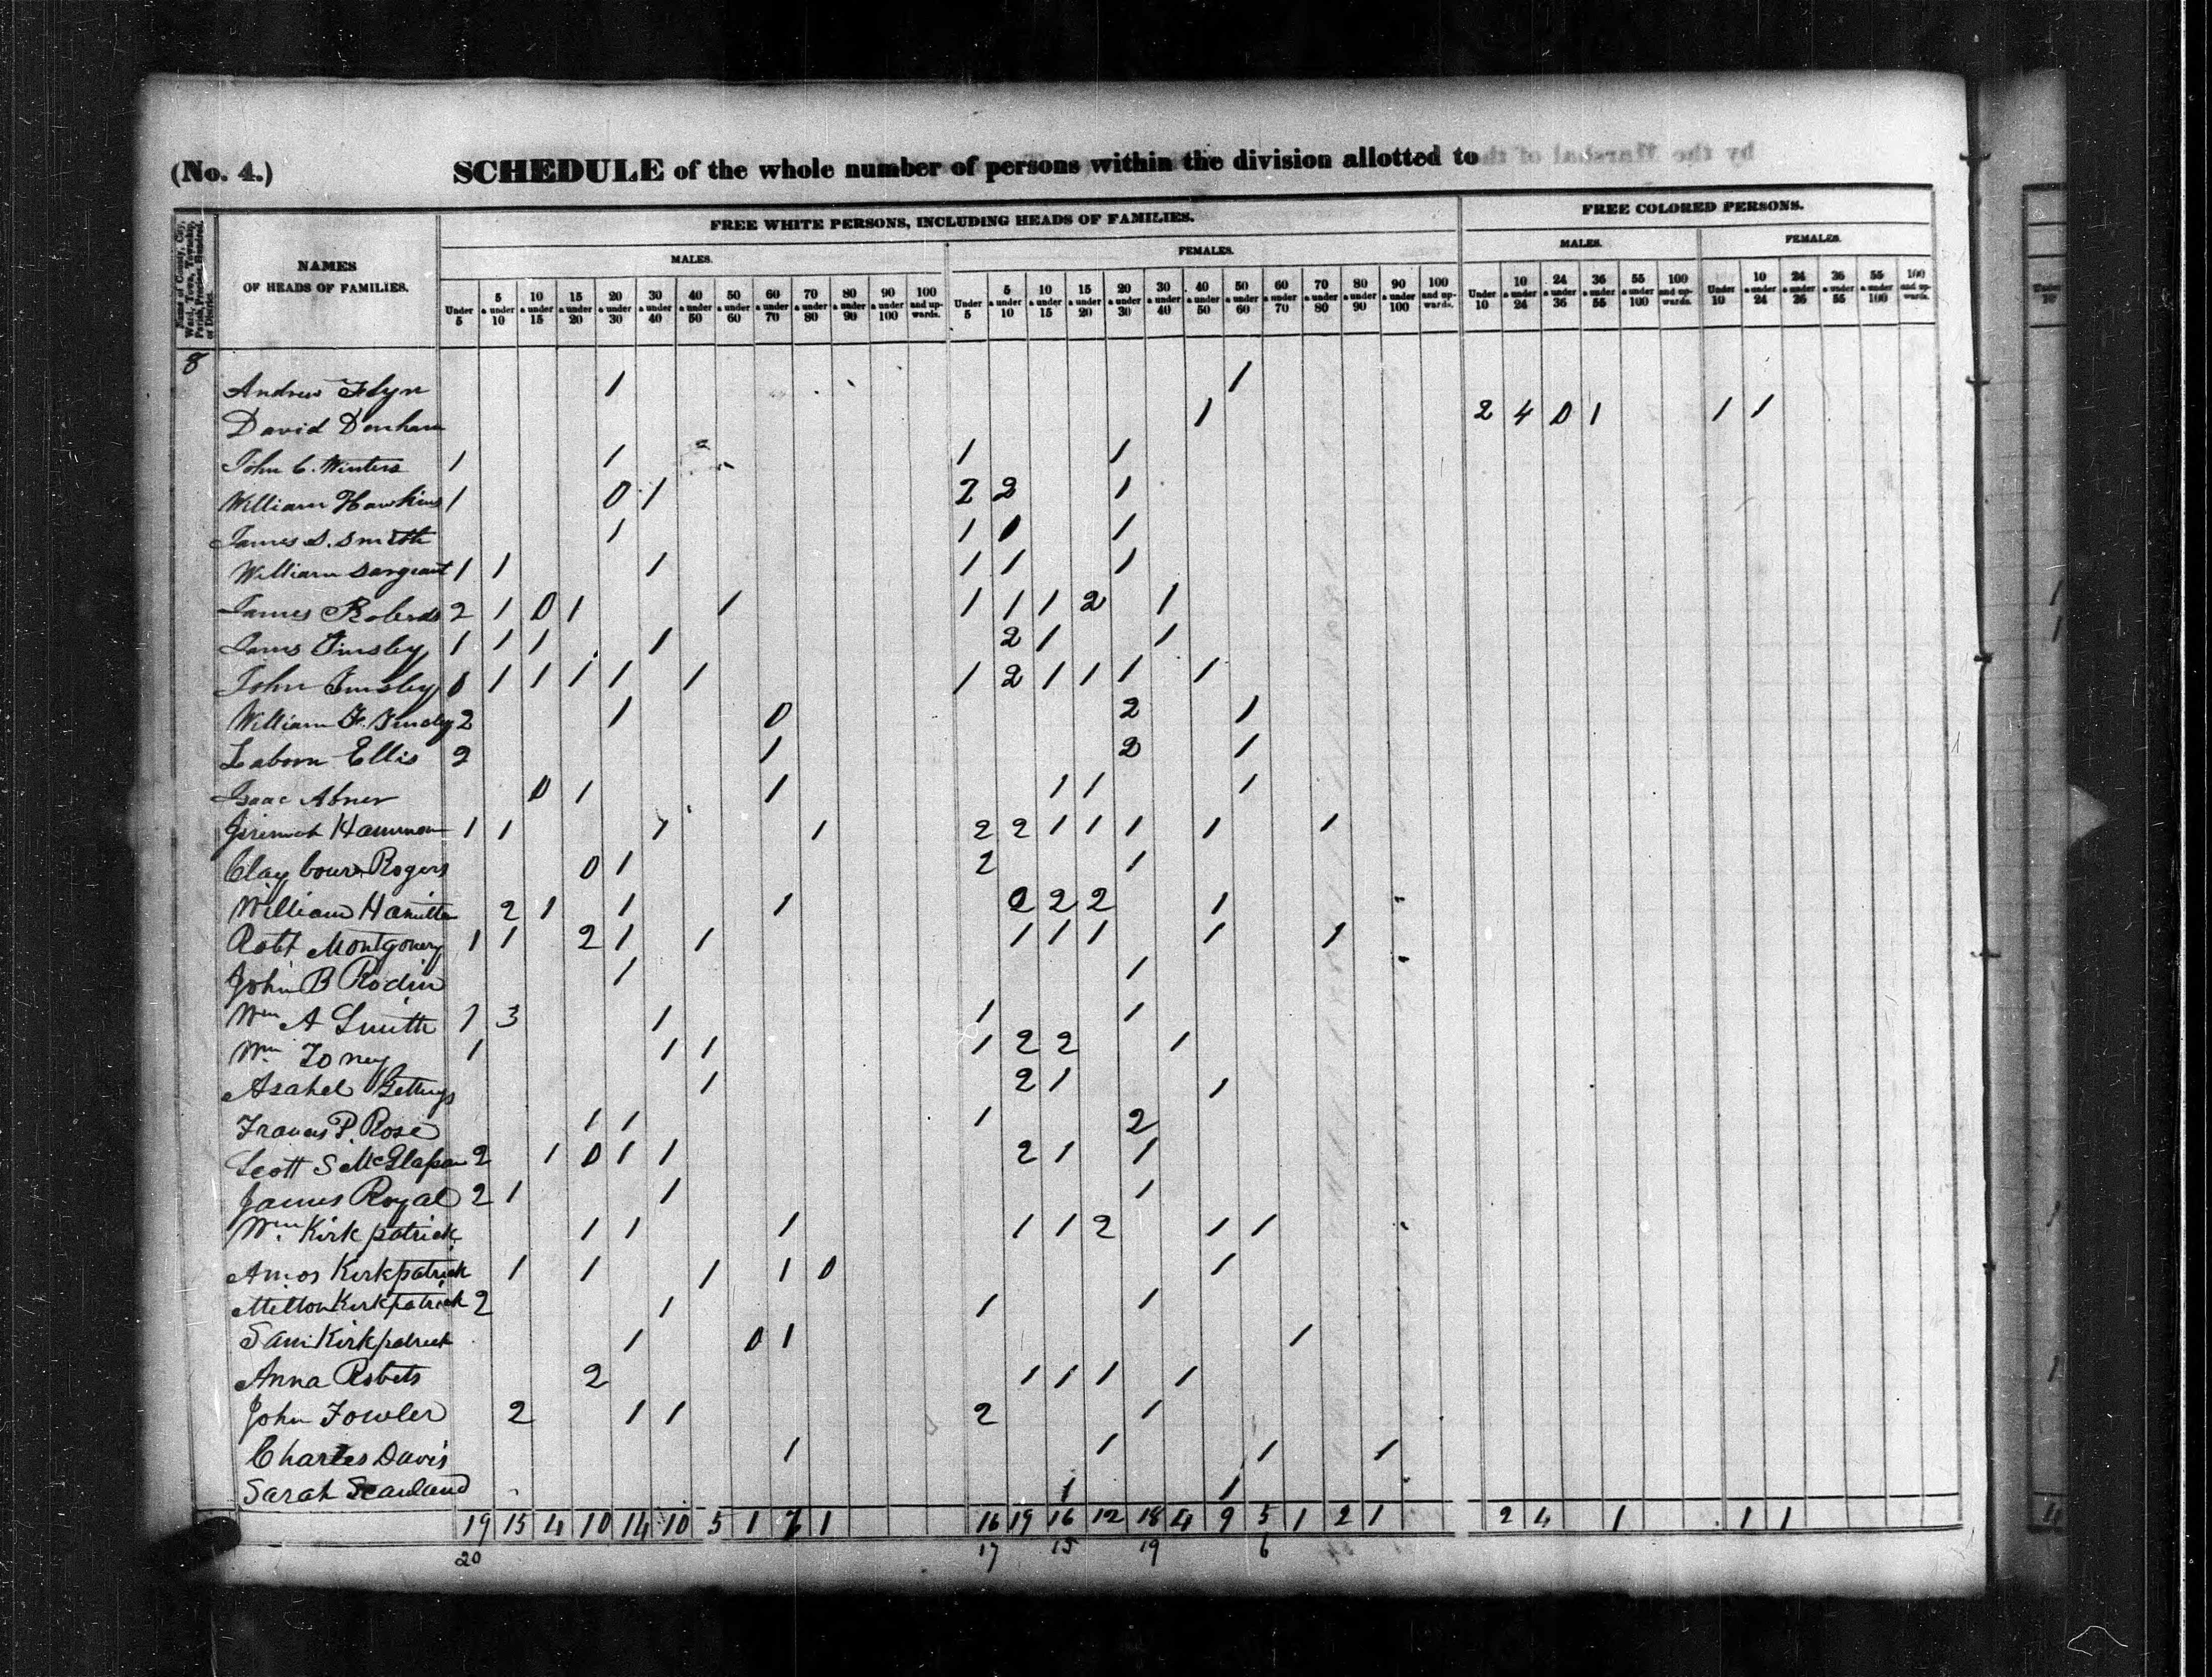 (No. 4.) SCHEDULE of the whole number of persons within the division allotted to by the Marshal of th
Name of County, City, Ward, Town, Township, Parish, Precinct, Hundred, or District.
NAMES OF HEADS OF FAMILIES.
FREE WHITE PERSONS, INCLUDING HEADS OF FAMILIES.
FREE COLORED PERSONS.
MALES. FEMALES. MALES. FEMALES.
Under 5 5 & under 10 10 & under 15 15 & under 20 20 & under 30 30 & under 40 40 & under 50 50 & under 60 60 & under 70 70 & under 80 80 & under 90 90 & under 100 100 and upwards. Under 5 5 & under 10 10 & under 15 15 & under 20 20 & under 30 30 & under 40 40 & under 50 50 & under 60 60 & under 70 70 & under 80 80 & under 90 90 & under 100 100 and upwards. Under 10 10 & under 24 24 & under 36 36 & under 55 55 & under 100 100 and upwards. Under 10 10 & under 24 24 & under 36 36 & under 55 55 & under 100 100 and upwards.
8
Andrew Flyn 1 1
David Denham 1 2 4 0 1 1 1
John C. Winters 1 1 1 1
William Hawkins 1 0 1 2 2 1
James S. Smith 1 1 0 1
William Sargeant 1 1 1 1 1 1
James Roberds 2 1 0 1 1 1 1 1 2 1
James Tinsley 1 1 1 1 2 1 1
John Tinsley 0 1 1 1 1 1 1 2 1 1 1 1
William 2 1 0 2 1
Laborn Ellis 2 1 2 1
Isaac Abner 0 1 1 1 1 1
Hammon 1 1 1 1 2 2 1 1 1 1 1
Claybourn Rogers 0 1 2 1
William Hamilton 2 1 1 1 0 2 2 1
Robt Montgomery 1 1 2 1 1 1 1 1 1 1
John B Rodin 1 1
Wm A Smith 1 3 1 1 1
Wm Toney 1 1 1 1 2 2 1
Asahel Gettings 1 2 1 1
Francis P. Rose 1 1 1 2
Scott S 2 1 0 1 1 2 1 1
James Royal 2 1 1 1
Wm Kirkpatrick 1 1 1 1 1 2 1 1
Amos Kirkpatrick 1 1 1 1 0 1
Milton Kirkpatrick 2 1 1 1
Saml Kirkpatrick 1 0 1 1
Anna Robets 2 1 1 1 1
John Fowler 2 1 1 2 1
Charles Davis 1 1 1 1
Sarah Scanland 1 1
19 15 4 10 14 10 5 1 7 1 16 19 16 12 18 4 9 5 1 2 1 2 4 1 1 1
20 17 15 19 6